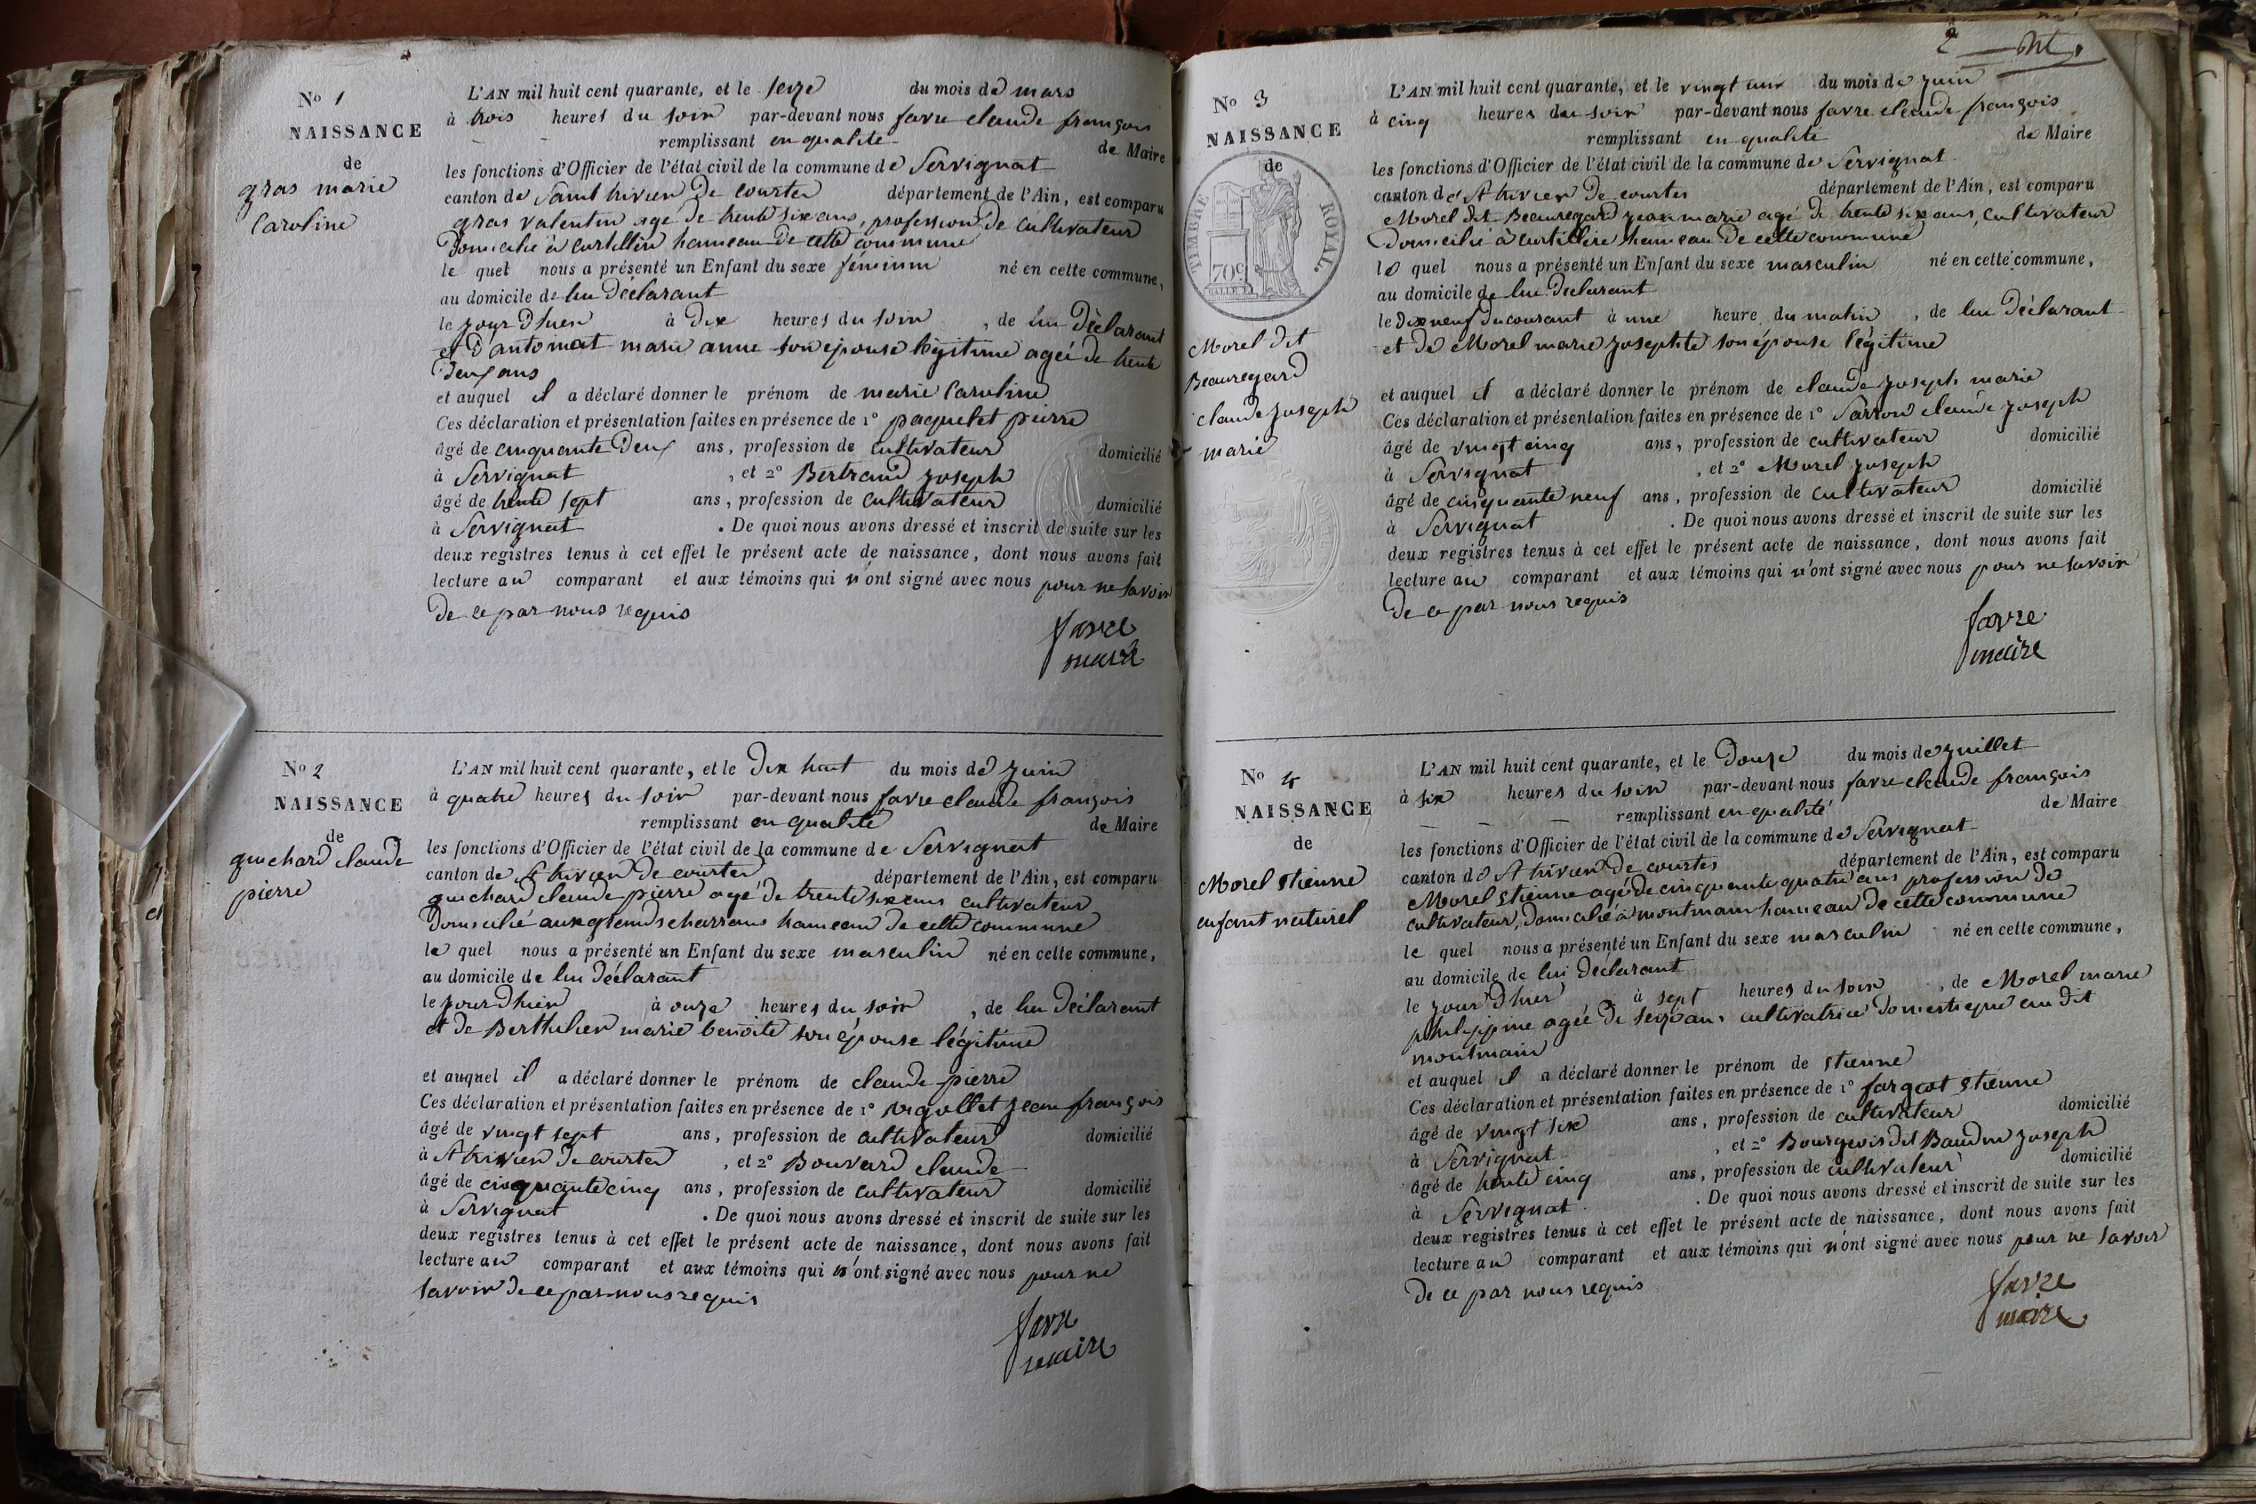 No 1
NAISSANCE
de
gras marie
Caroline
L'AN mil huit cent quarante, et le seize du mois de mars
à trois heures du soir par-devant nous favre claude françois
remplissant en qualité de Maire
les fonctions d'Officier de l'état civil de la commune de Servignat
canton de Saint trivier De courtes département de l'Ain, est comparu
gras valentin agé De trente six ans, profession De cultivateur
Domicilié à curtillin hameau De cette commune
le quel nous a présenté un Enfant du sexe féminin né en cette commune,
au domicile de lui Déclarant
le jour D'hier à Dix heures du soir, de lui Déclarant
et D'antomat marie anne son épouse légitime agée De trente
Deux ans
et auquel il a déclaré donner le prénom de marie Caroline
Ces déclaration et présentation faites en présence de 1° paquelet pierre
âgé de cinquante Deux ans, profession de cultivateur domicilié
à Servignat, et 2° Bertrand joseph
âgé de trente sept ans, profession de cultivateur domicilié
à Servignat. De quoi nous avons dressé et inscrit de suite sur les
deux registres tenus à cet effet le présent acte de naissance, dont nous avons fait
lecture au comparant et aux témoins qui n'ont signé avec nous pour ne savoir
De ce par nous requis
favre
maire
No 2
NAISSANCE
de
guichard claude
pierre
L'AN mil huit cent quarante, et le Dix huit du mois de juin
à quatre heures du soir par-devant nous favre claude françois
remplissant en qualité de Maire
les fonctions d'Officier de l'état civil de la commune de Servignat
canton de St trivier De courtes département de l'Ain, est comparu
guichard claude pierre agé De trente six ans cultivateur
Domicilié aux grands charrans hameau De cette commune
le quel nous a présenté un Enfant du sexe masculin né en cette commune,
au domicile de lui Déclarant
le jour D'hier à onze heures du soir, de lui Déclarant
et De Berthelier marie benoite son épouse légitime
et auquel il a déclaré donner le prénom de claude pierre
Ces déclaration et présentation faites en présence de 1° jean françois
âgé de vingt sept ans, profession de cultivateur domicilié
à St trivier De courtes, et 2° Bouvard claude
âgé de cinquante cinq ans, profession de cultivateur domicilié
à Servignat. De quoi nous avons dressé et inscrit de suite sur les
deux registres tenus à cet effet le présent acte de naissance, dont nous avons fait
lecture au comparant et aux témoins qui n'ont signé avec nous pour ne
savoir De ce par nous requis
favre
maire
No 3
NAISSANCE
de
TIMBRE ROYAL.
70c
Morel Dit
Beauregard
claude joseph
marie
L'AN mil huit cent quarante, et le vingt un du mois de juin
à cinq heures du soir par-devant nous favre claude françois
remplissant en qualité de Maire
les fonctions d'Officier de l'état civil de la commune de Servignat
canton de St trivier De courtes département de l'Ain, est comparu
Morel dit Beauregard jean marie agé De trente six ans, cultivateur
Domicilié à curtillin hameau De cette commune
le quel nous a présenté un Enfant du sexe masculin né en cette commune,
au domicile de lui Déclarant
le Dix neuf Du courant à une heure du matin, de lui Déclarant
et De Morel marie josephte son épouse légitime
et auquel il a déclaré donner le prénom de claude joseph marie
Ces déclaration et présentation faites en présence de 1° Sarron claude joseph
âgé de vingt cinq ans, profession de cultivateur domicilié
à Servignat, et 2° Morel joseph
âgé de cinquante neuf ans, profession de cultivateur domicilié
à Servignat. De quoi nous avons dressé et inscrit de suite sur les
deux registres tenus à cet effet le présent acte de naissance, dont nous avons fait
lecture au comparant et aux témoins qui n'ont signé avec nous pour ne savoir
De ce par nous requis
favre
maire
No 4
NAISSANCE
de
Morel Etienne
enfant naturel
L'AN mil huit cent quarante, et le Douze du mois de juillet
à six heures du soir par-devant nous favre claude françois
remplissant en qualité de Maire
les fonctions d'Officier de l'état civil de la commune de Servignat
canton de St trivier De courtes département de l'Ain, est comparu
Morel Etienne agé de cinquante quatre ans profession De
cultivateur, Domicilié à montmain hameau De cette commune
le quel nous a présenté un Enfant du sexe masculin né en cette commune,
au domicile de lui Déclarant
le jour D'hier à sept heures du soir, de Morel marie
philippine agée De seize ans cultivatrice Domestique au dit
montmain
et auquel il a déclaré donner le prénom de Etienne
Ces déclaration et présentation faites en présence de 1° fargeot Etienne
âgé de vingt six ans, profession de cultivateur domicilié
à Servignat, et 2° Bourgeois dit Baudin joseph
âgé de trente cinq ans, profession de cultivateur domicilié
à Servignat. De quoi nous avons dressé et inscrit de suite sur les
deux registres tenus à cet effet le présent acte de naissance, dont nous avons fait
lecture au comparant et aux témoins qui n'ont signé avec nous pour ne savoir
De ce par nous requis
favre
maire